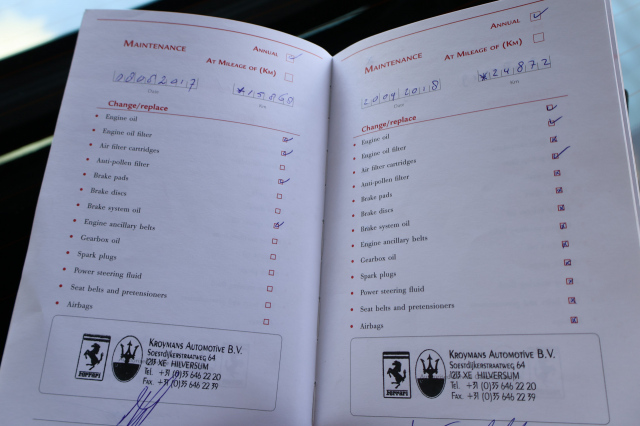 MAINTENANCE
ANNUAL
AT MILEAGE OF (KM)
Date
Km
Change/replace
• Engine oil
• Engine oil filter
• Air filter cartridges
• Anti-pollen filter
• Brake pads
• Brake discs
• Brake system oil
• Engine ancillary belts
• Gearbox oil
• Spark plugs
• Power steering fluid
• Seat belts and pretensioners
• Airbags
Ferrari
KROYMANS AUTOMOTIVE B.V.
SOESTDIJKERSTRAATWEG 64
1213 XE HILVERSUM
TEL. +31 (0)35 646 22 20
FAX. +31 (0)35 646 22 39
MAINTENANCE
ANNUAL
AT MILEAGE OF (KM)
2004 2018
*24872
Date
Km
Change/replace
• Engine oil
• Engine oil filter
• Air filter cartridges
• Anti-pollen filter
• Brake pads
• Brake discs
• Brake system oil
• Engine ancillary belts
• Gearbox oil
• Spark plugs
• Power steering fluid
• Seat belts and pretensioners
• Airbags
Ferrari
KROYMANS AUTOMOTIVE B.V.
SOESTDIJKERSTRAATWEG 64
1213 XE HILVERSUM
TEL. +31 (0)35 646 22 20
FAX. +31 (0)35 646 22 39